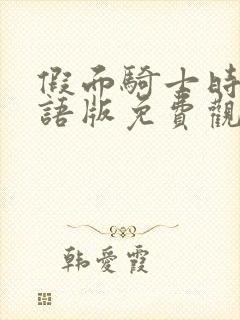 假面騎士時
語版免費觀
韩愛霞